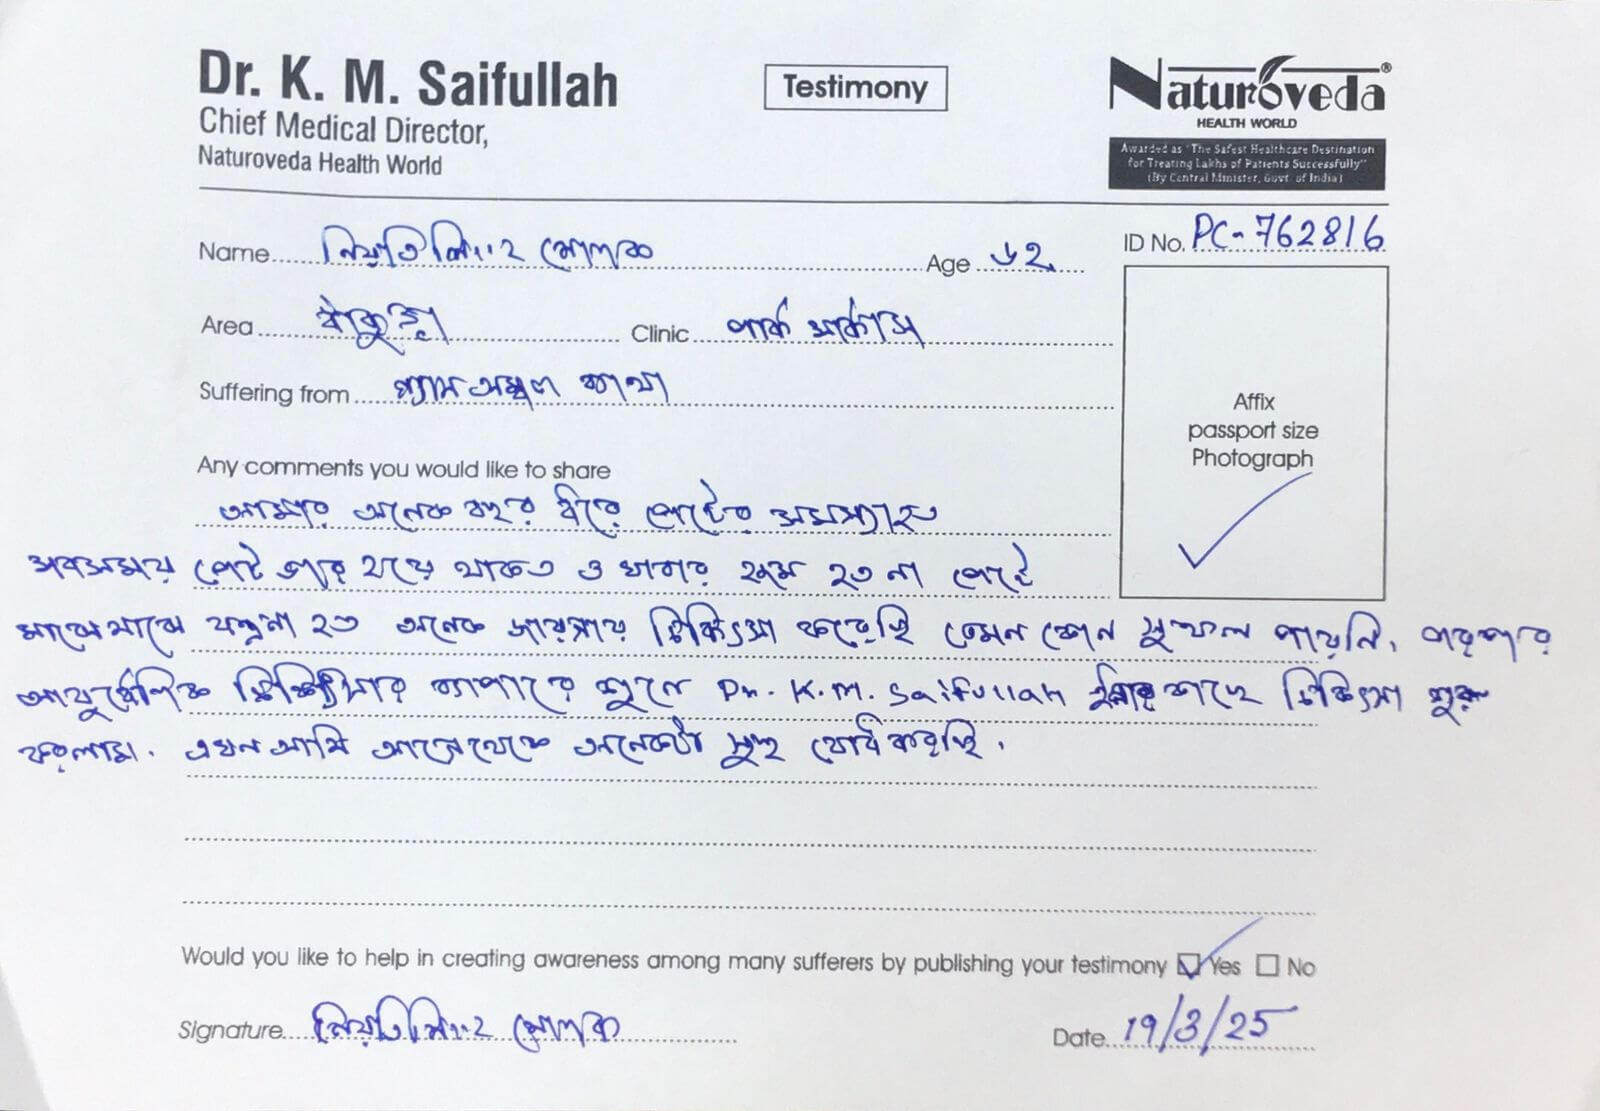 Dr. K. M. Saifullah
Chief Medical Director,
Naturoveda Health World
Testimony
Naturoveda®
HEALTH WORLD
Awarded as "The Safest Healthcare Destination
for Treating Lakhs of Patients Successfully"
(By Central Minister, Govt. of India)
ID No. PC-762816
Name নিয়তি সিংহ
Age ৬২
Area বাঁকুড়া Clinic পার্ক সার্কাস
Suffering from গ্যাস অম্বল ব্যাথা
Affix
passport size
Photograph
Any comments you would like to share
আমার অনেক বছর ধরে পেটের সমস্যা
সবসময় পেট ভার হয়ে থাকত ও খাবার হজম হত না পেটে
মাঝে মাঝে যন্ত্রনা হত অনেক জায়গায় চিকিৎসা করেছি তেমন কোন সুফল পায়নি,
চিকিৎসার ব্যাপারে শুনে Dr. K.M. Saifullah কাছে চিকিৎসা শুরু
করলাম. এখন আমি আগে থেকে অনেকটা সুস্থ বোধ করছি.
Would you like to help in creating awareness among many sufferers by publishing your testimony Yes No
Signature নিয়তি সিংহ
Date 19/3/25